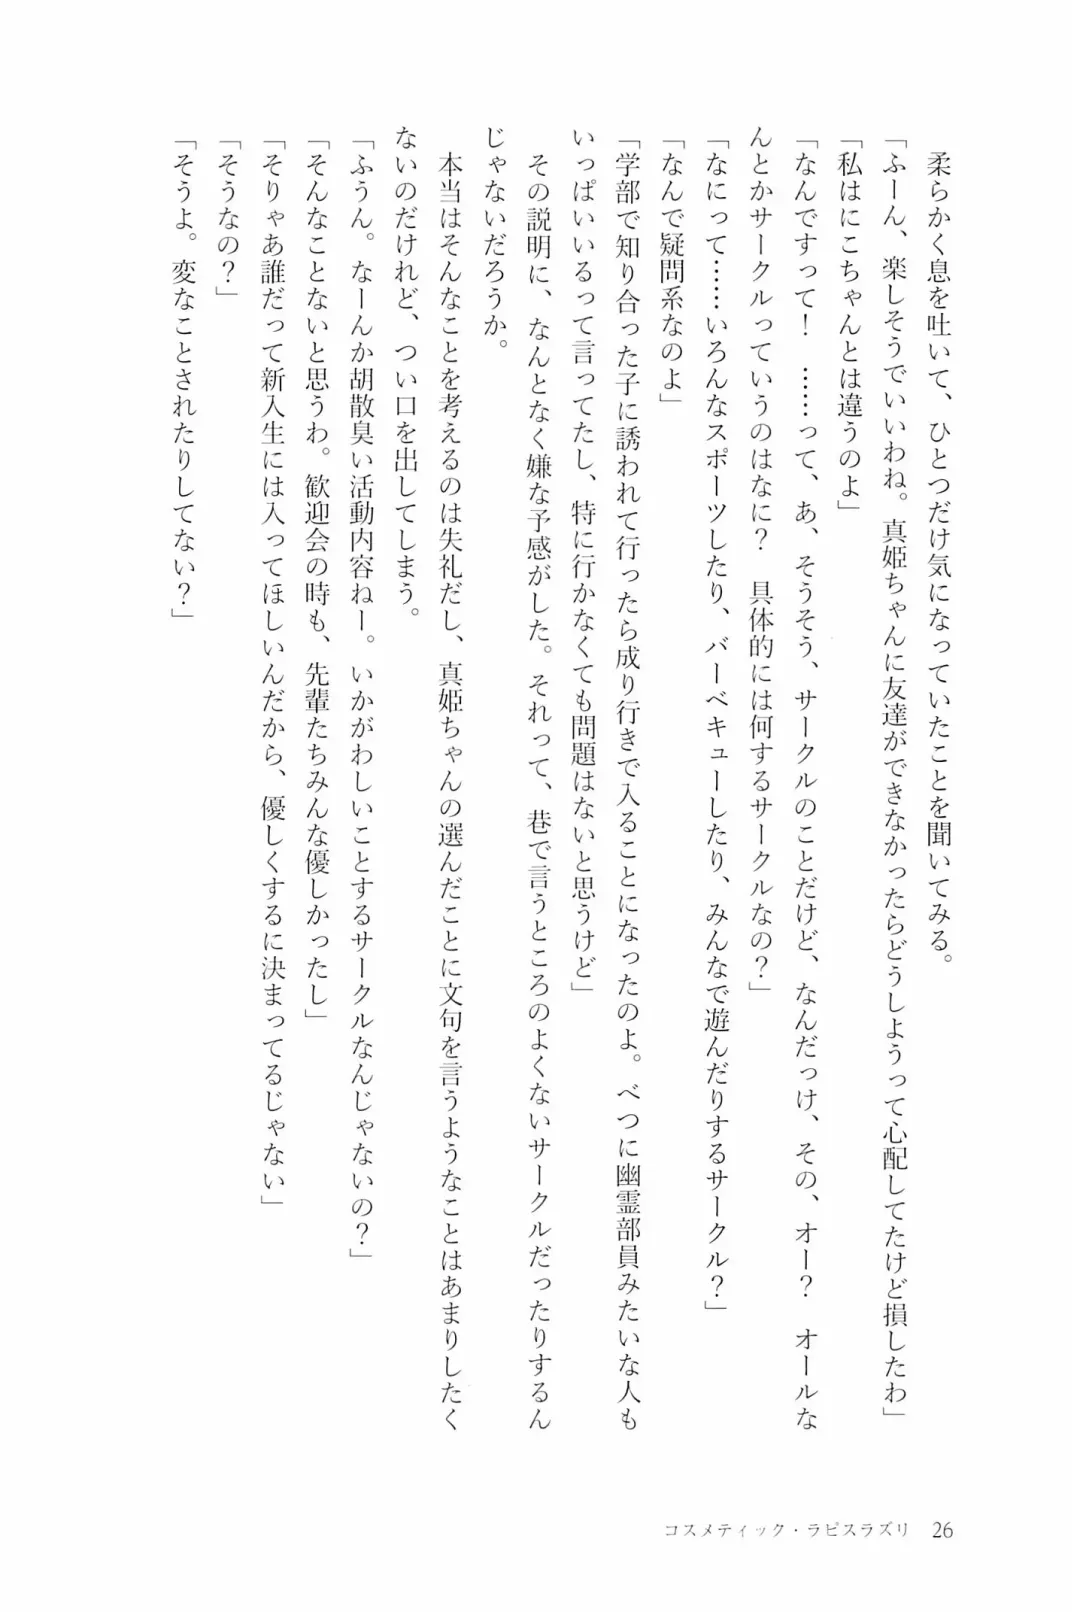 柔らかく息を吐いて、ひとつだけ気になっていたことを聞いてみる。
「ふーん、楽しそうでいいわね。真姫ちゃんに友達ができなかったらどうしようって心配してたけど損したわ」
「私はにこちゃんとは違うのよ」
「なんですって！　……って、あ、そうそう、サークルのことだけど、なんだっけ、その、オー？　オールな
んとかサークルっていうのはなに？　具体的には何するサークルなの？」
「なにって……いろんなスポーツしたり、バーベキューしたり、みんなで遊んだりするサークル？」
「なんで疑問系なのよ」
「学部で知り合った子に誘われて行ったら成り行きで入ることになったのよ。べつに幽霊部員みたいな人も
いっぱいいるって言ってたし、特に行かなくても問題はないと思うけど」
　その説明に、なんとなく嫌な予感がした。それって、巷で言うところのよくないサークルだったりするん
じゃないだろうか。
　本当はそんなことを考えるのは失礼だし、真姫ちゃんの選んだことに文句を言うようなことはあまりしたく
ないのだけれど、つい口を出してしまう。
「ふうん。なーんか胡散臭い活動内容ねー。いかがわしいことするサークルなんじゃないの？」
「そんなことないと思うわ。歓迎会の時も、先輩たちみんな優しかったし」
「そりゃあ誰だって新入生には入ってほしいんだから、優しくするに決まってるじゃない」
「そうなの？」
「そうよ。変なことされたりしてない？」
コスメティック・ラピスラズリ　26